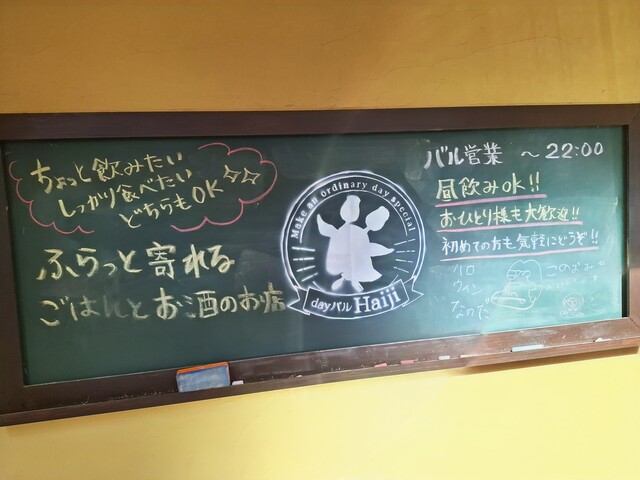 ちょっと飲みたい
しっかり食べたい
どちらもOK
ふらっと寄れる
ごはんとお酒のお店
Make an ordinary day special
dayバル Haiji
バル営業 ～22:00
昼飲みOK!!
おひとり様も大歓迎!!
初めての方も気軽にどうぞ!!
ハロ
ウィン
なので